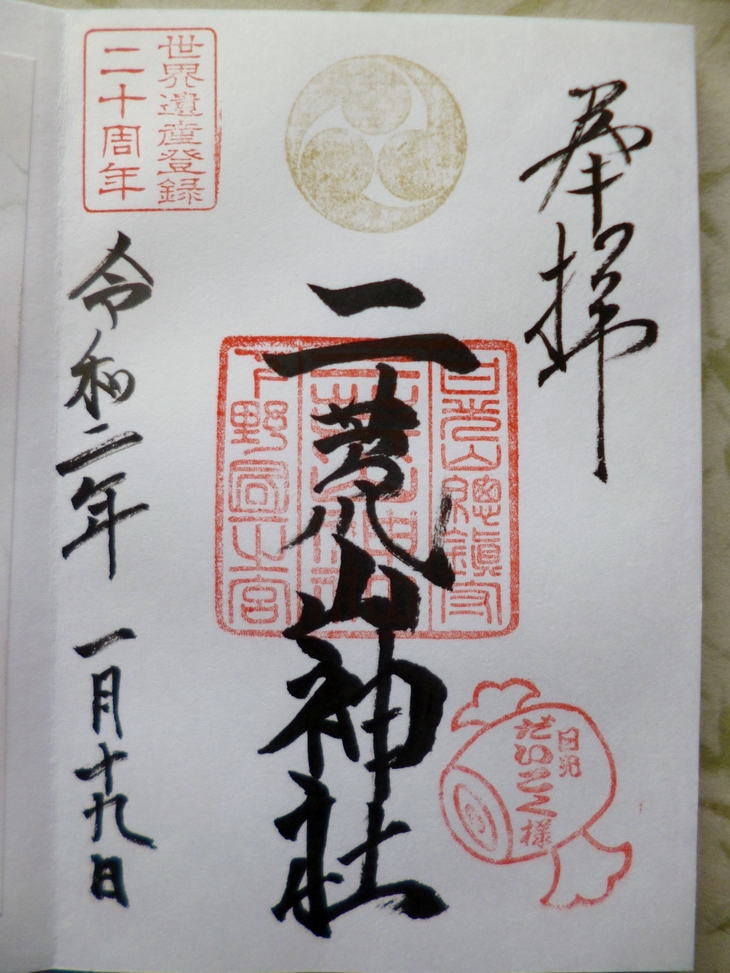 奉拝
日光山總鎮守
二荒山神社
下野國一之宮
二荒山神社
日光
だいこく様
世界遺産登録
二十周年
令和二年 一月十九日